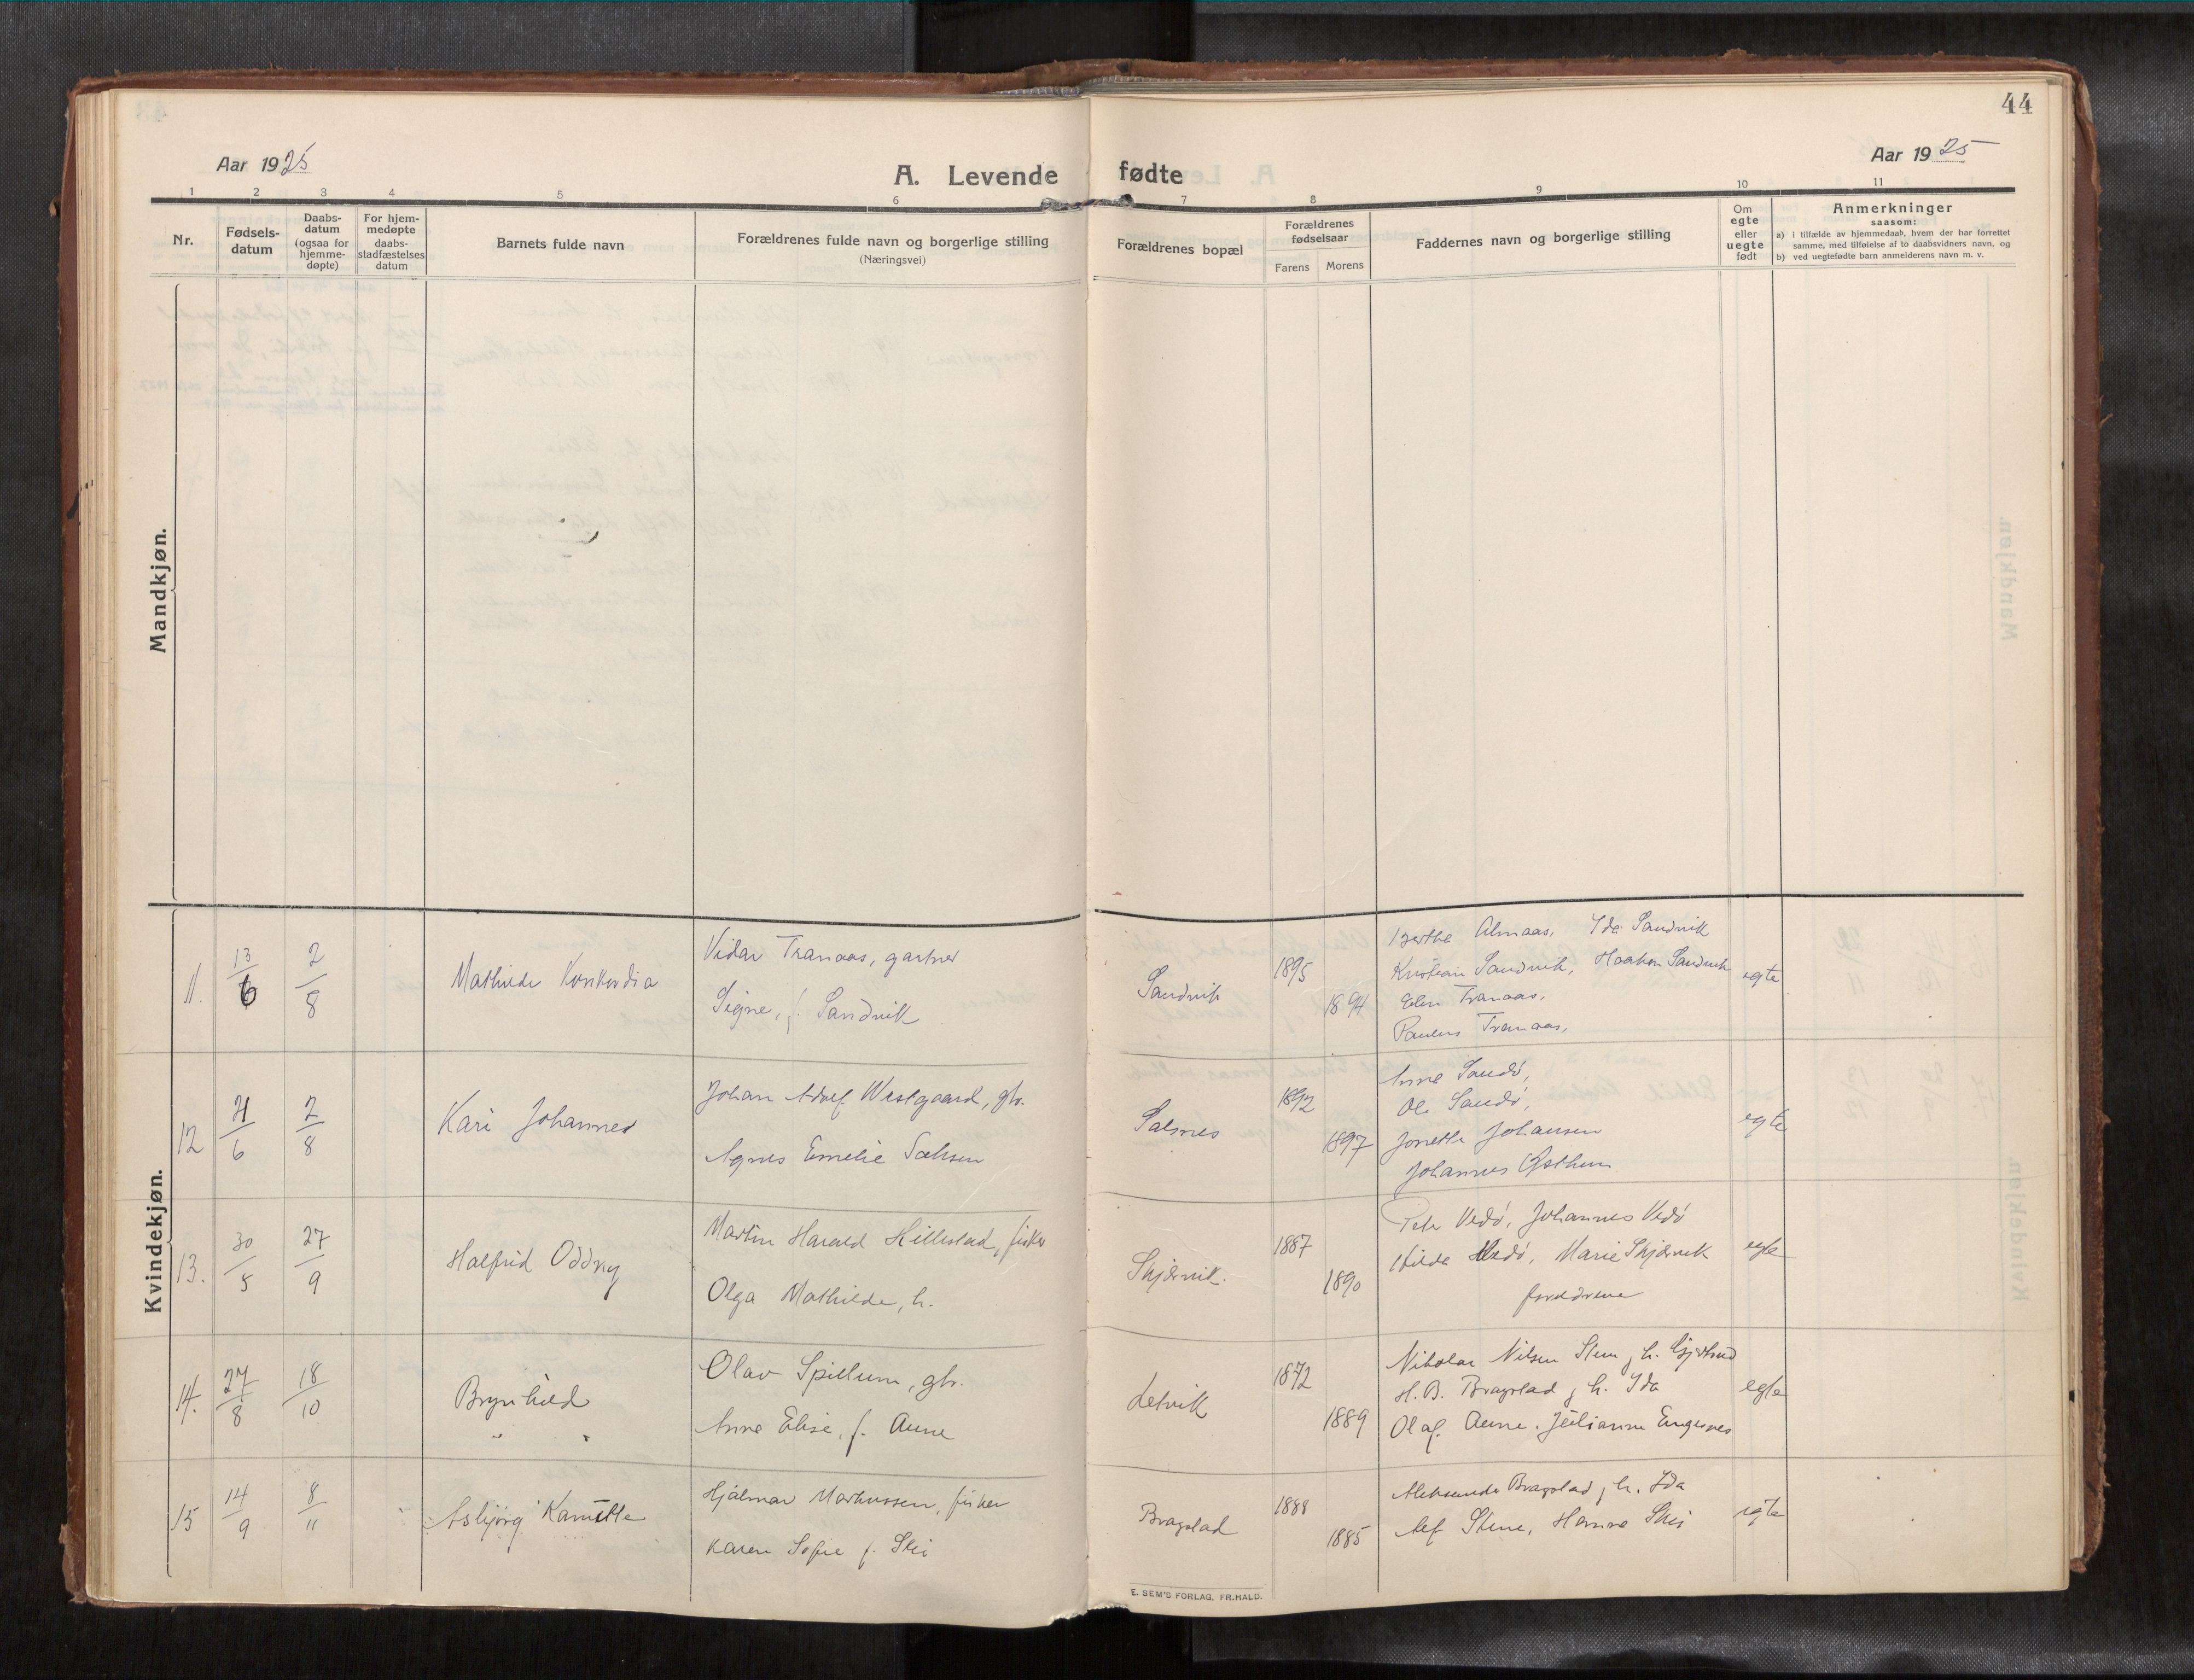 44
Aar 1925
A. Levende fødte
Aar 1925
1 2 3 4 5 6 7 8 9 10 11
Nr.
Fødsels-
datum
Daabs-
datum
(ogsaa for
hjemme-
døpte)
For hjem-
medøpte
daabs-
stadfæstelses
datum
Barnets fulde navn
Forældrenes fulde navn og borgerlige stilling
(Næringsvei)
Forældrenes bopæl
Forældrenes
fødselsaar
Farens Morens
Faddernes navn og borgerlige stilling
Om
egte
eller
uegte
født
Anmerkninger
saasom:
a) i tilfælde av hjemmedaab, hvem der har forrettet
samme, med tilføielse af to daabsvidners navn, og
b) ved uegtefødte barn anmelderens navn m. v.
Mandkjøn.
Kvindekjøn.
11. 13/6 2/8 Mathilde Konkordia
Vidar Tranaas, gartner
Signe, f. Sandvik
Sandvik 1895 1894
Berthe Almaas, Ida Sandvik
Kristian Sandvik, Haakon Sandvik
Elen Tranaas,
Paulus Tranaas,
egte
12 21/6 2/8 Kari Johannes
Johan Adolf Westgaard, gbr.
Agnes Emelie
Salsnes 1892 1897
Anne Sandö,
Ole Sandö,
Jonette Johansen
Johannes
egte
13. 30/5 27/9 Halfrid Oddny
Martin Harald Hillestad, fisker
Olga Mathilde, h.
Skjærvik. 1887 1890
Peter Vedö, Johannes Vedö
Hilda Vedö, Marie Skjærvik
foreldrene
egte
14. 27/8 18/10 Brynhild
" "
Olav Spillum, gbr.
Anne Elise, f. Aune
Letvik 1872 1889
Nikolai Nilsen Sten, h. Gjertrud
H. B. Bragstad, h. Ida
Olaf Aune. Julianne Engesnes
egte
15 14/9 8/11 Asbjörg Kamille
Hjalmar Markussen, fisker
Karen Sofie f. Skei
Bragstad 1888 1885
Aleksander Bragstad, h. Ida
Alf Stene, Hanna Skei
egte
E. SEM'S FORLAG, FR.HALD.